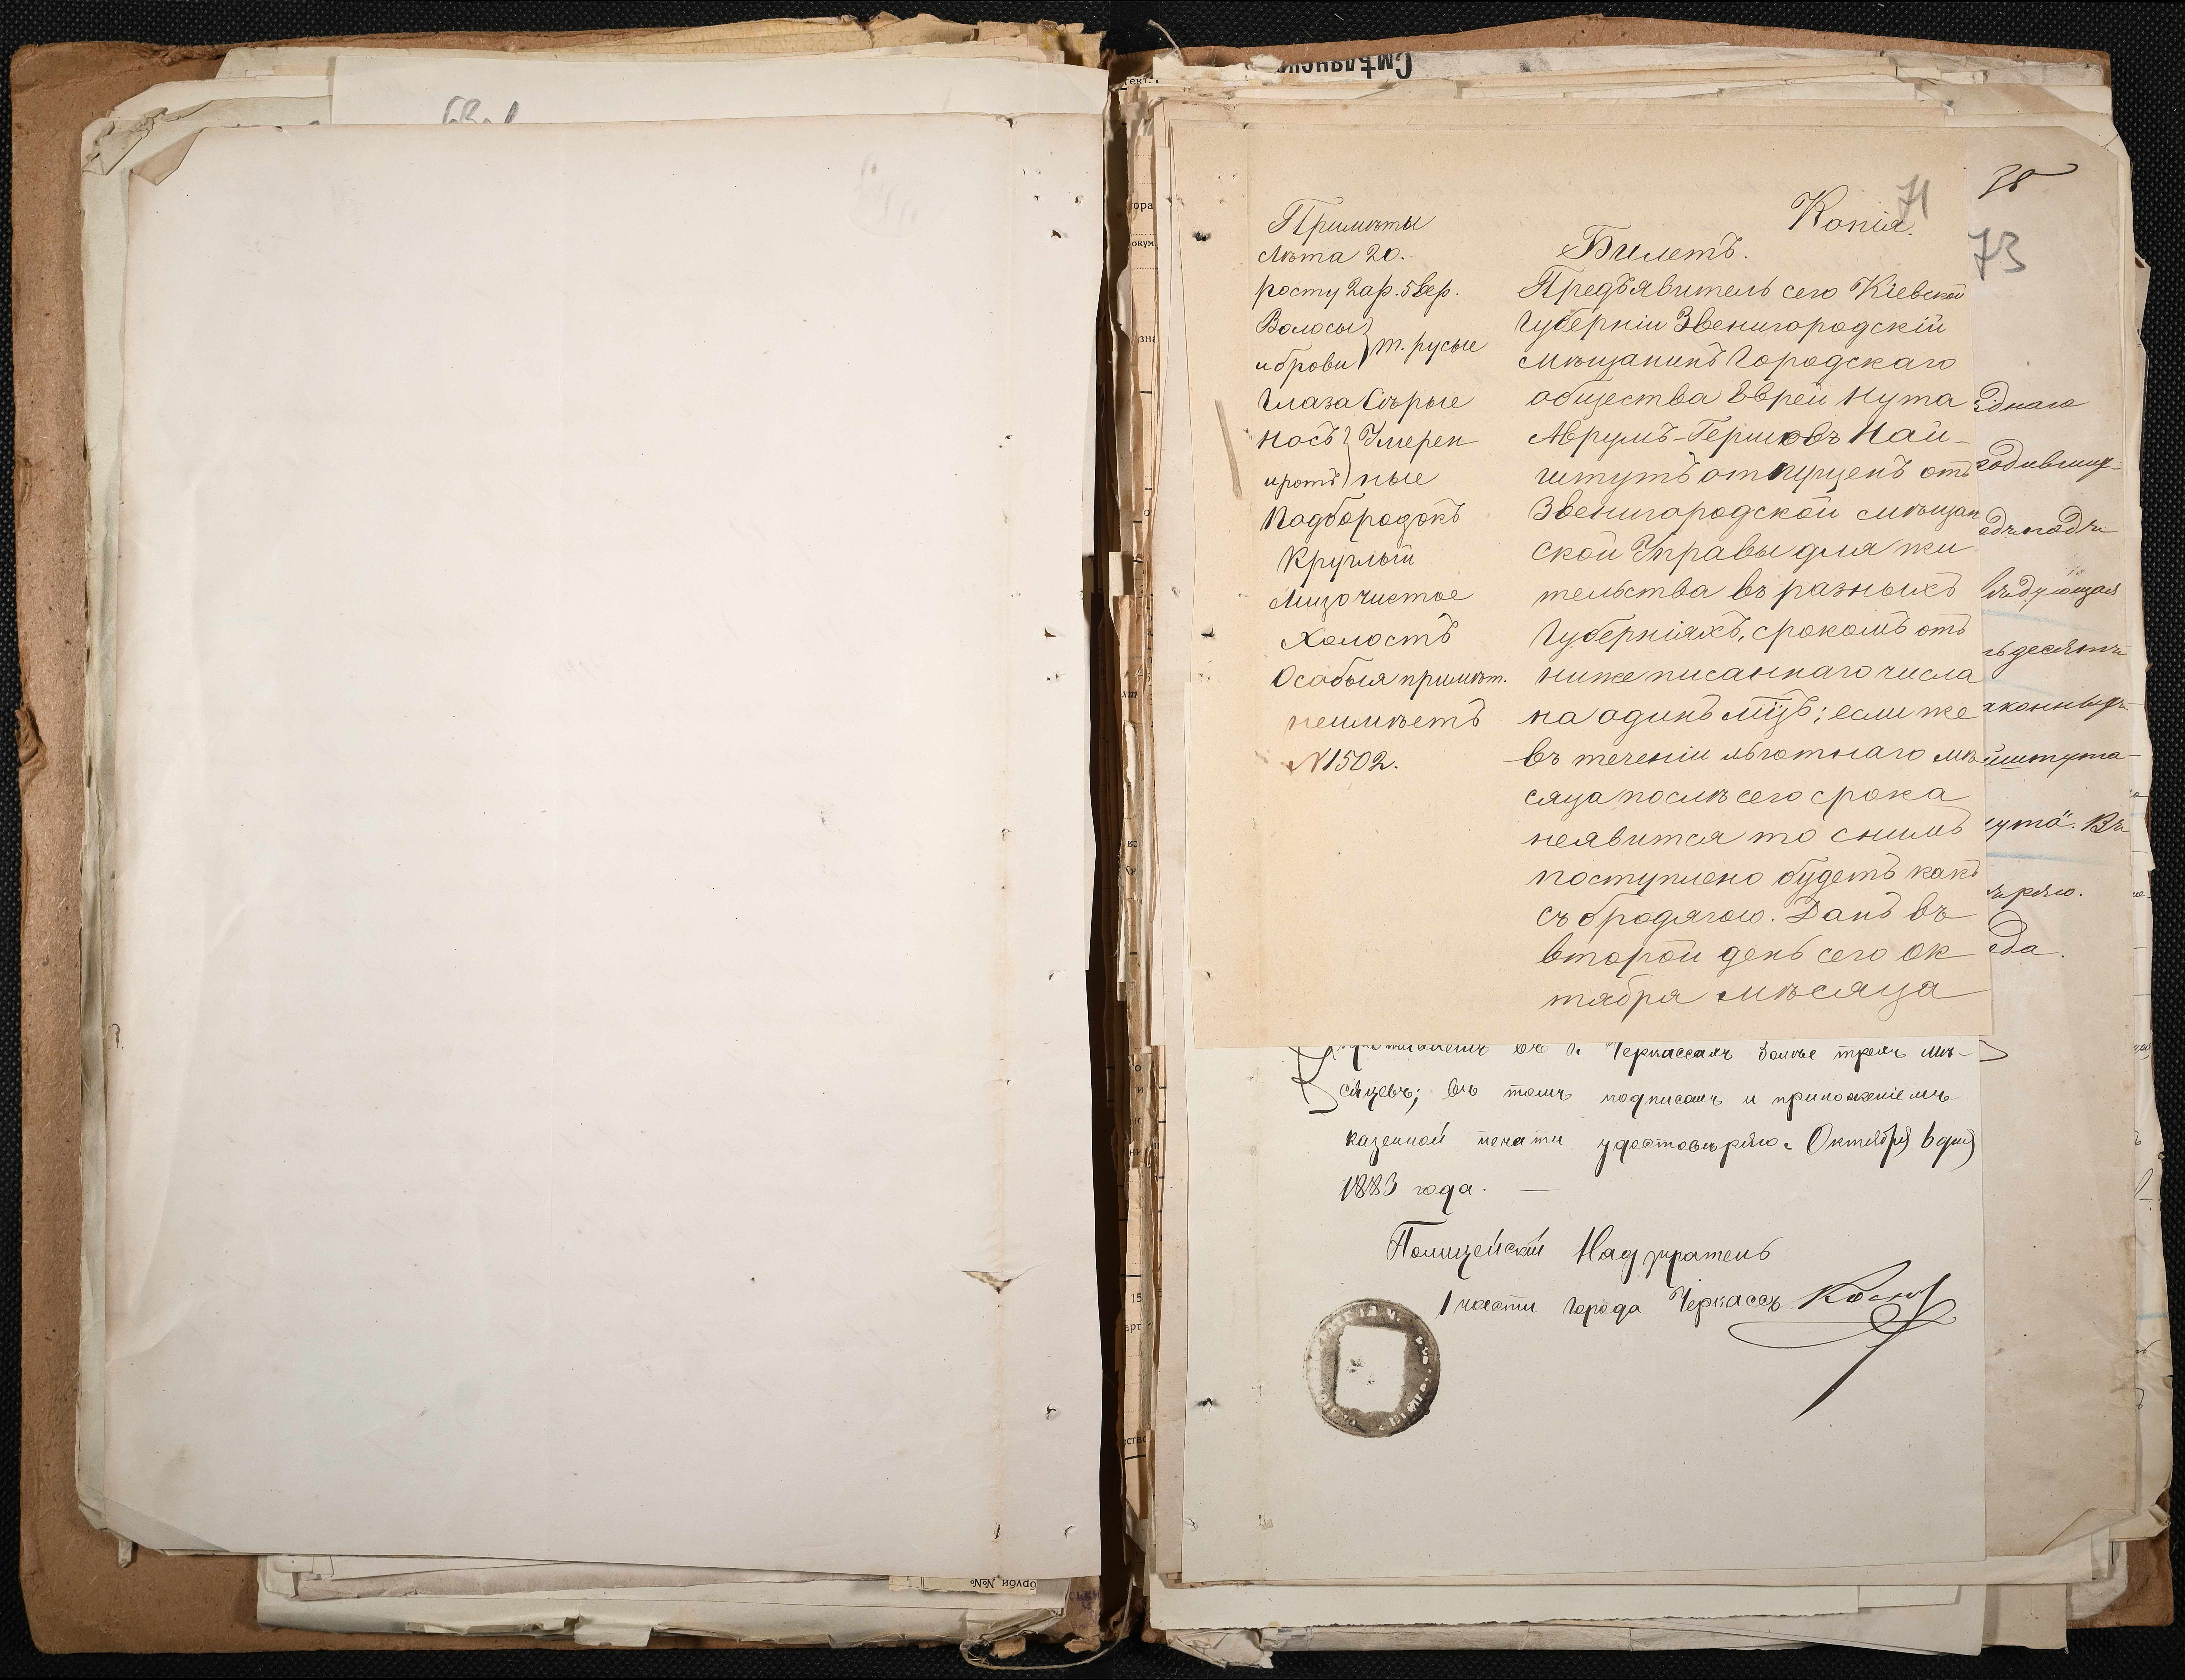 Смѣлянск
71
Копія.
Примѣты
Лѣта 20.
росту 2 ар. 5 вер.
Волосы
и брови } т. русые
Глаза Сѣрые
Носъ } Умерен
и ротъ } ные
Подбородокъ
Круглый
Лицо чистое
Холостъ
Особыя примѣт.
неимѣетъ
№ 1502.
Билетъ.
Предъявитель сего Кіевской
Губерніи Звенигородскій
мѣщанинъ Городскаго
общества Еврей Нута
Аврумъ-Гершовъ Най-
штутъ отпущенъ отъ
Звенигородской мѣщан
ской Управы для жи
тельства въ разныхъ
Губерніяхъ, срокомъ отъ
ниже писаннаго числа
на одинъ мцъ; если же
въ теченіи льготнаго мѣ
сяца послѣ сего срока
неявится то снимъ
поступлено будетъ какъ
съ бродягою. Данъ въ
второй день сего Ок
тября мѣсяца
38
73
днаго
годившу-
вѣдующая
десяти
аконныхъ
йштута-
ута. Въ
ряю.
да.
въ г. Черкассахъ болѣе трехъ мѣ-
сяцевъ; въ томъ подписомъ и приложеніемъ
казенной печати удостовѣряю. Октября 6 дня
1883 года.
Полицейскій Надзиратель
1 части города Черкассъ